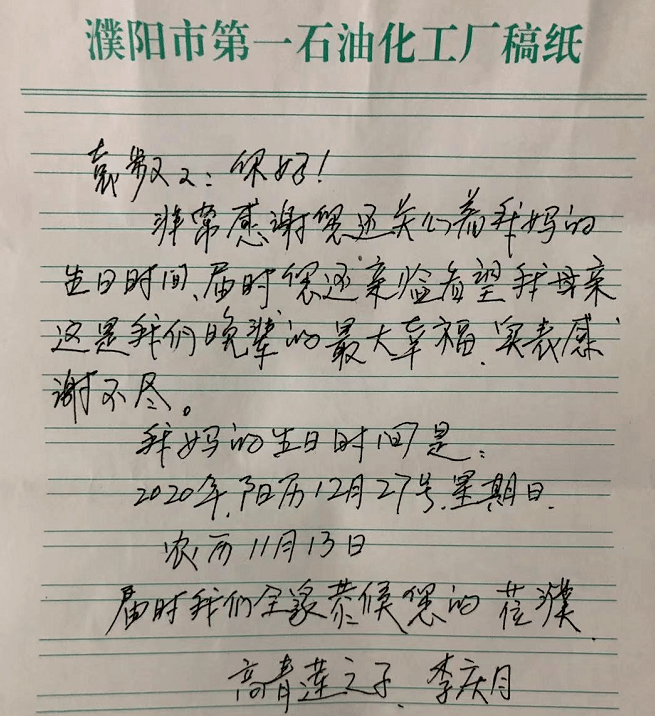 濮阳市第一石油化工厂稿纸
袁教义:你好!
非常感谢您还关心着我妈的
生日时间、届时您还亲临看望我母亲
这是我们晚辈的最大幸福、实表感
谢不尽。
我妈的生日时间是:
2020年、阳历12月27号、星期日、
农历11月13日
届时我们全家恭候您的莅濮、
高青莲之子、李庆月